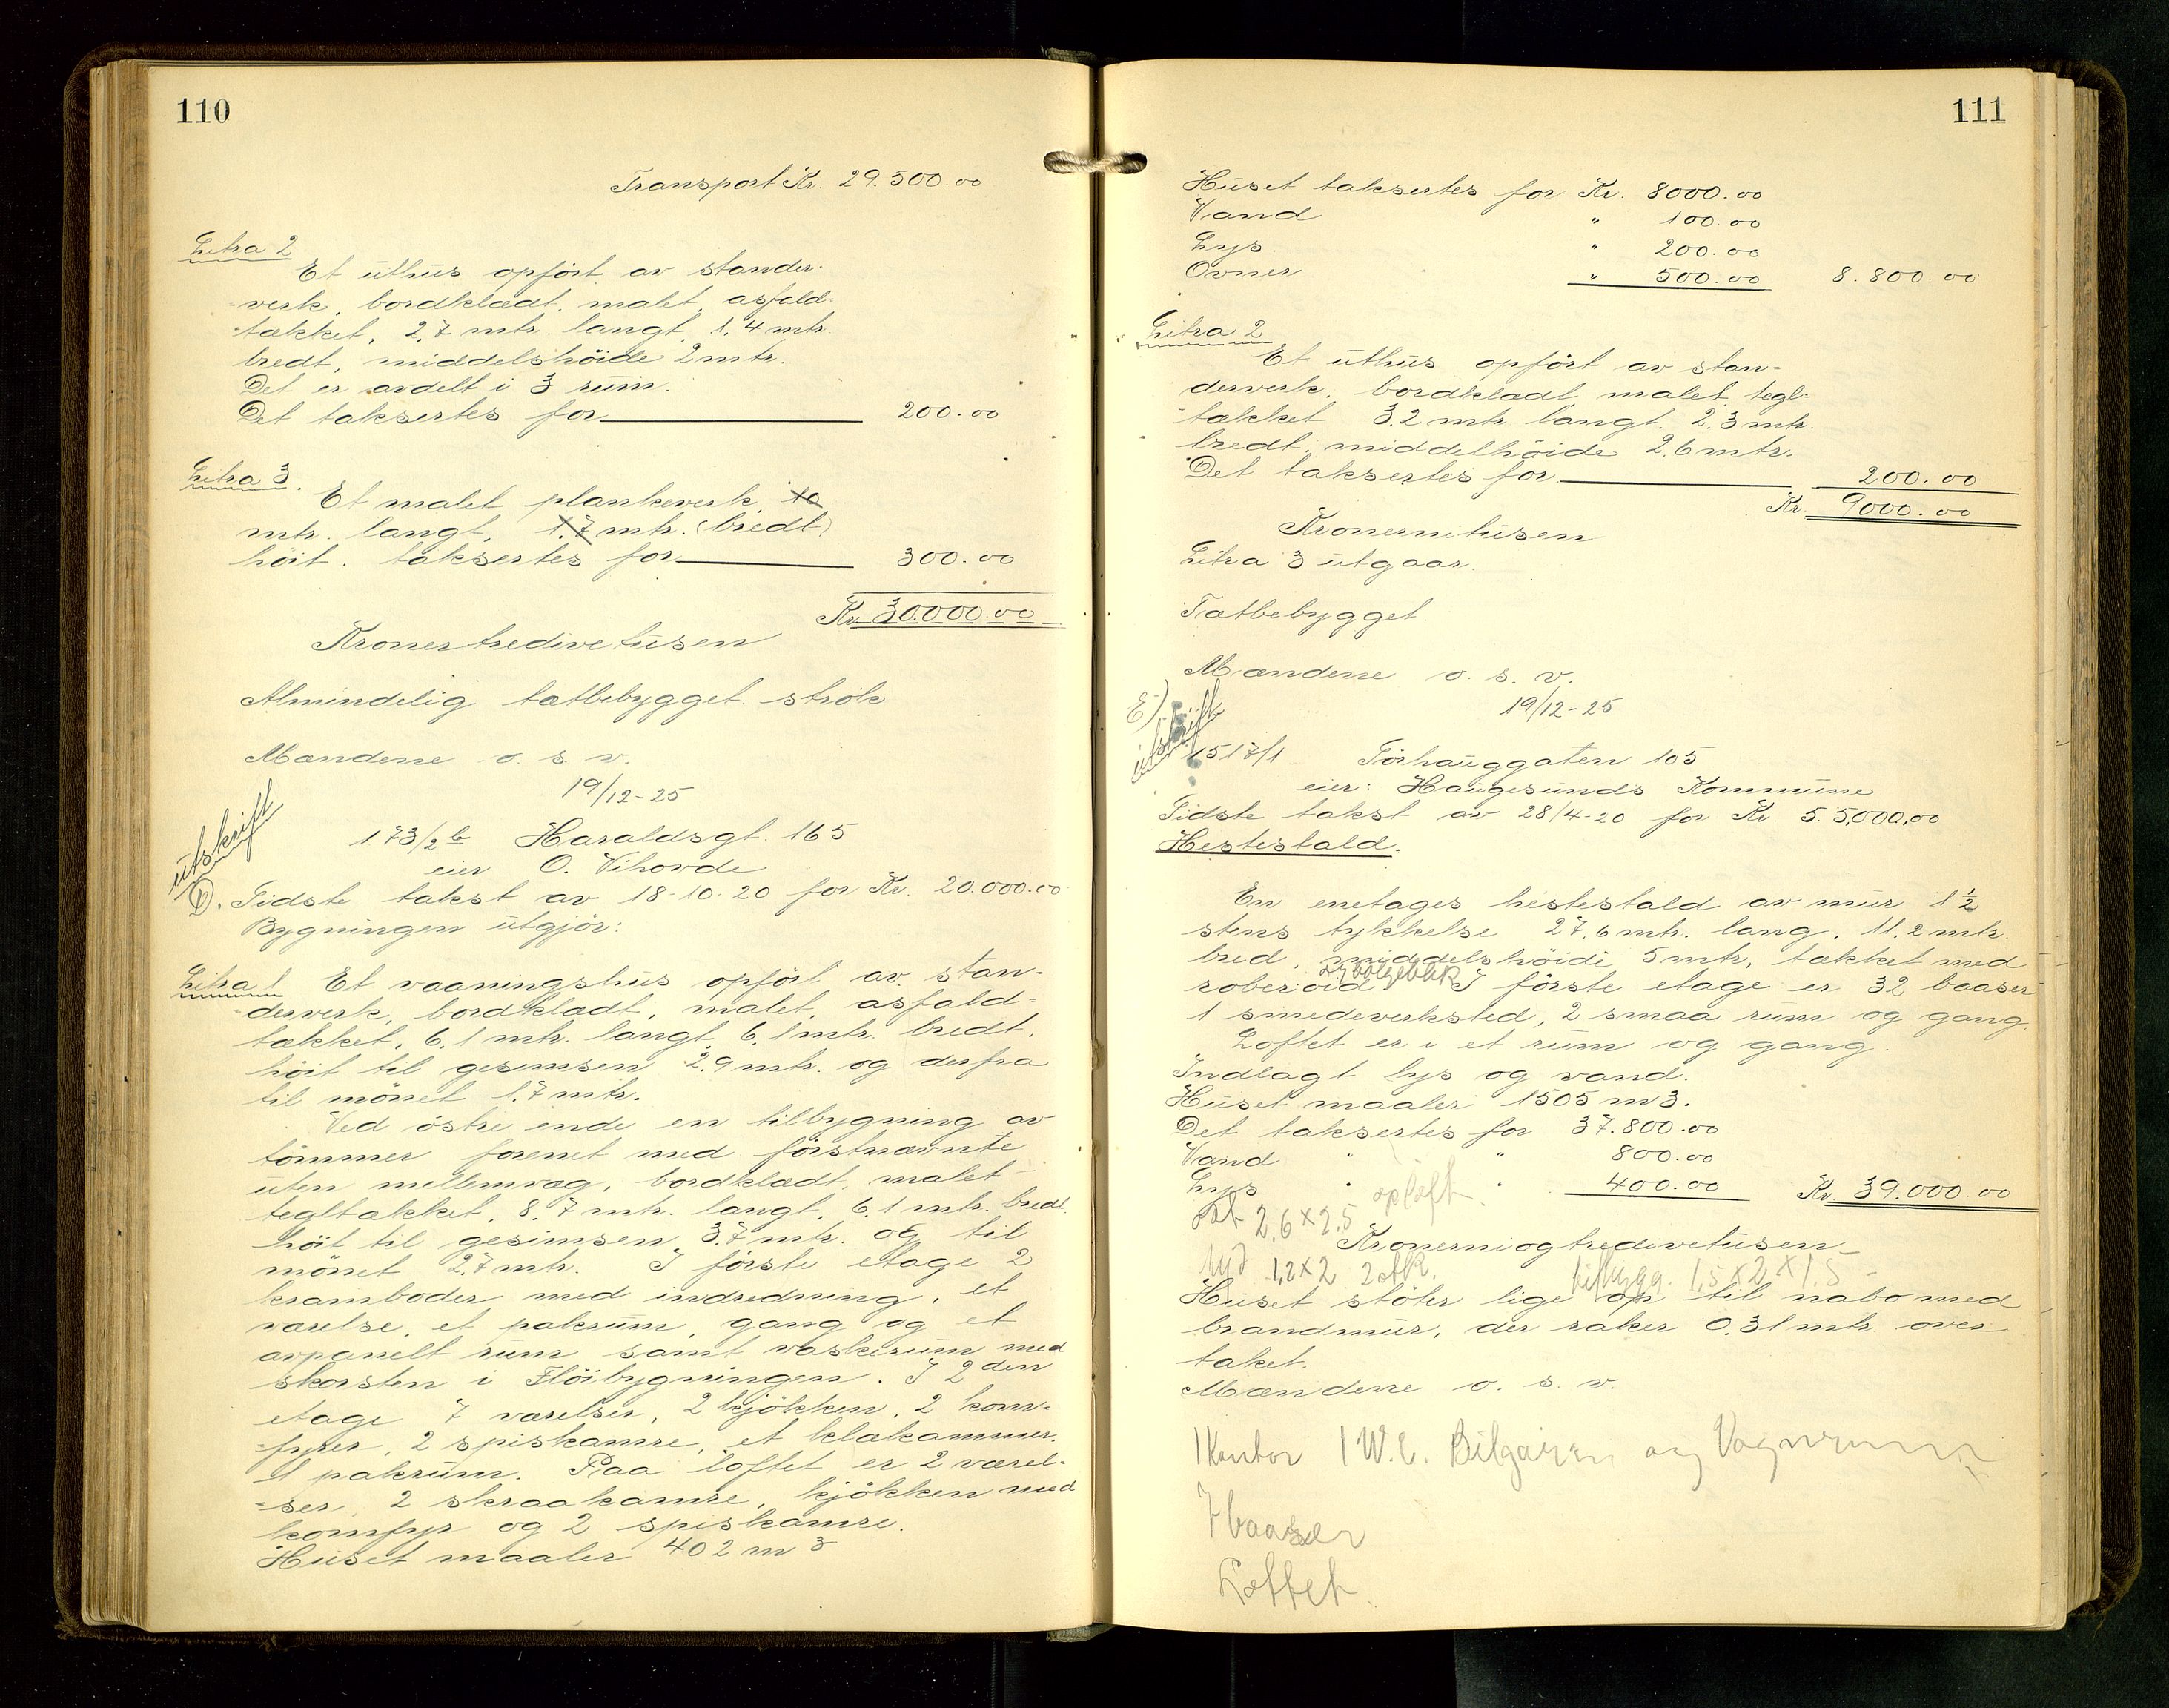 110
Transport Kr. 29.500.00
Litra 2
Et uthus opført av stander-
-verk, bordklædt, malet, asfald-
-tækket, 2,7 mtr. langt, 1.4 mtr.
bredt, middelshöide 2 mtr.
Det er avdelt i 3 rum.
Det taksertes for 200.00
Litra 3.
Et malet plankeverk, 10
mtr. langt, 1.7 mtr. (bredt)
höit. taksertes for 300.00
Kr. 30.000.00
Kronertredivetusen
Almindelig tætbebygget strök
Mændene o. s. v.
19/12-25
utskrift
173/2 b Haraldsgt. 165
eier O. Vihovde
D. Sidste takst av 18-10-20 for Kr. 20.000.00
Bygningen utgjör:
Litra 1 Et vaaningshus opfört av stan-
-derverk, bordklædt, malet, asfald-
tækket, 6.1 mtr. langt, 6.1 mtr. bredt,
höit til gesimsen 2.9 mtr. og derfra
til mönet 1.7 mtr.
Ved östre ende en tilbygning av
tömmer forenet med förstnævnte
uten mellemvæg, bordklædt, malet
tegltækket, 8.7 mtr. langt, 6.1 mtr. bredt.
höit til gesimsen 3.7 mtr. og til
mönet 2.7 mtr. I förste etage 2
kramboder med indredning, et
værelse, et pakrum, gang og et
avpanelt rum samt vaskerum med
skorsten i Flöibygningen. I 2den
etage 7 værelser, 2 kjökken, 2 kom-
-fyrer, 2 spiskamre, et klækammer.
1 pakrum. Paa loftet er 2 værel-
-ser, 2 skraakamre, kjökken med
komfyr og 2 spiskamre.
Huset maaler 402 m3
111
Huset taksertes for Kr. 8000.00
Vand " 100.00
Lys " 200.00
Ovner " 500.00 8.800.00
Litra 2
Et uthus opfört av stan-
derverk, bordklædt, malet, tegl-
-tækket 3.2 mtr. langt. 2.3 mtr.
bredt, middelhöide 2.6 mtr.
Det taksertes for 200.00
Kr. 9000.00
Kronernitusen
Litra 3 utgaar.
Tætbebygget.
Mændene o. s. v.
19/12-25
E.)
utskrift
1517/1 Törhauggaten 105
eier: Haugesunds Kommune
Sidste takst av 28/4-20 for Kr 55,000,00
Hestestald.
En enetages hestestald av mur 1 1/2
stens tykkelse 27.6 mtr. lang, 11.2 mtr.
bred, middelshöide 5 mtr, tækket med
roberoid I förste etage er 32 baaser
1 smedeverksted, 2 smaa rum og gang.
Loftet er i et rum og gang.
Indlagt lys og vand.
Huset maaler 1505 m3.
Det taksertes for 37.800.00
Vand " " 800.00
Lys " " 400.00 Kr. 39.000.00
2,6 x 2,5
Kronerniogtredivetusen
1,2 x 2 2 tilbygg. 1,5 x 2 x 1.5
Huset stöter lige op til nabo med
brandmur, der raker 0.31 mtr over
taket.
Mændene o. s. v.
1 Kontor 1 W.C. og Vognrum
7 baaser
Loftet